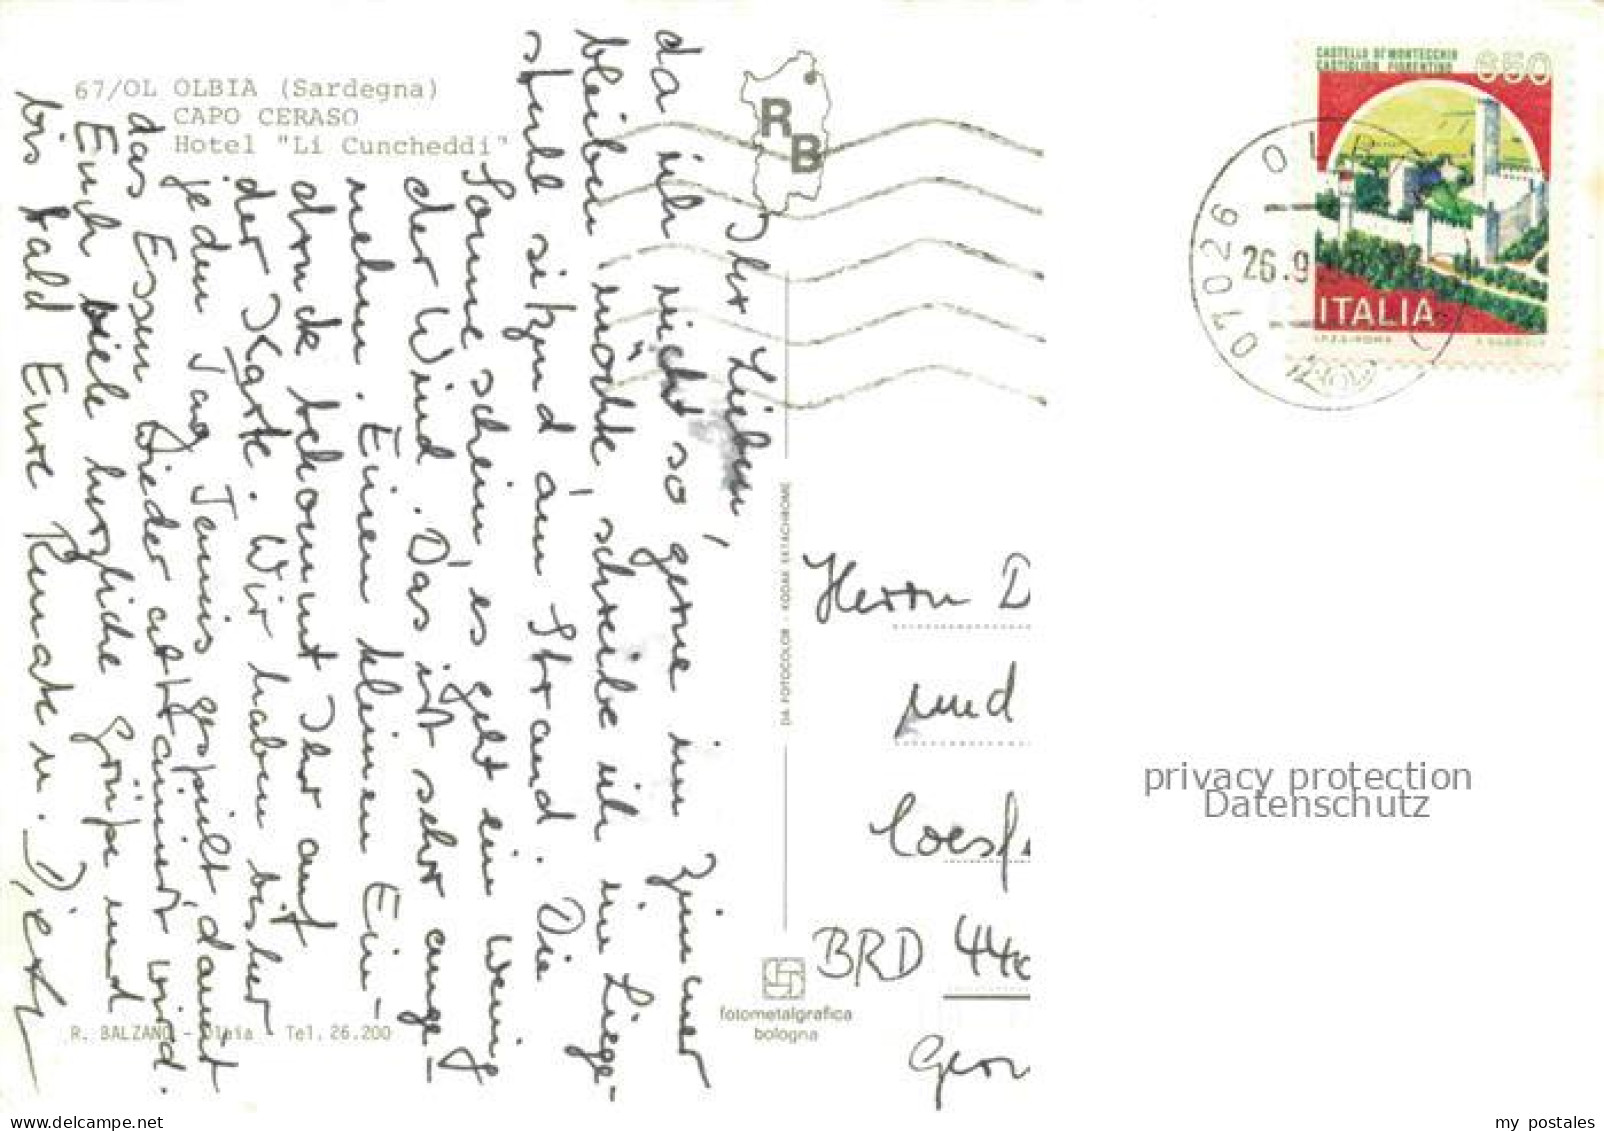 67/OL OLBIA (Sardegna)
CAPO CERASO
Hotel "Li Cuncheddi"
Ihr Lieben,
da ich nicht so gerne im Zimmer
bleiben möchte, schreibe ich im Liege-
stuhl sitzend am Strand. Die
Sonne scheint, es geht ein wenig
der Wind. Das ist sehr ange-
nehm. Einen kleinen Ein-
druck bekommt Ihr auf
der Karte. Wir haben bisher
jeden Tag Tennis gespielt, damit
das Essen wieder abtrainiert wird.
Euch viele herzliche Grüße und
bis bald Eure Renate u. Dieter
R. BALZANO - Olbia Tel. 26.200
RB
DA FOTOCOLOR - KODAK EKTACHROME
fotometalgrafica
bologna
CASTELLO DI MONTECCHIO
CASTIGLION FIORENTINO
650
ITALIA
I.P.Z.S. ROMA
07026 OLB
26.9
Herrn D
und
Coesf
BRD 440
Ger
privacy protection
Datenschutz
my postales